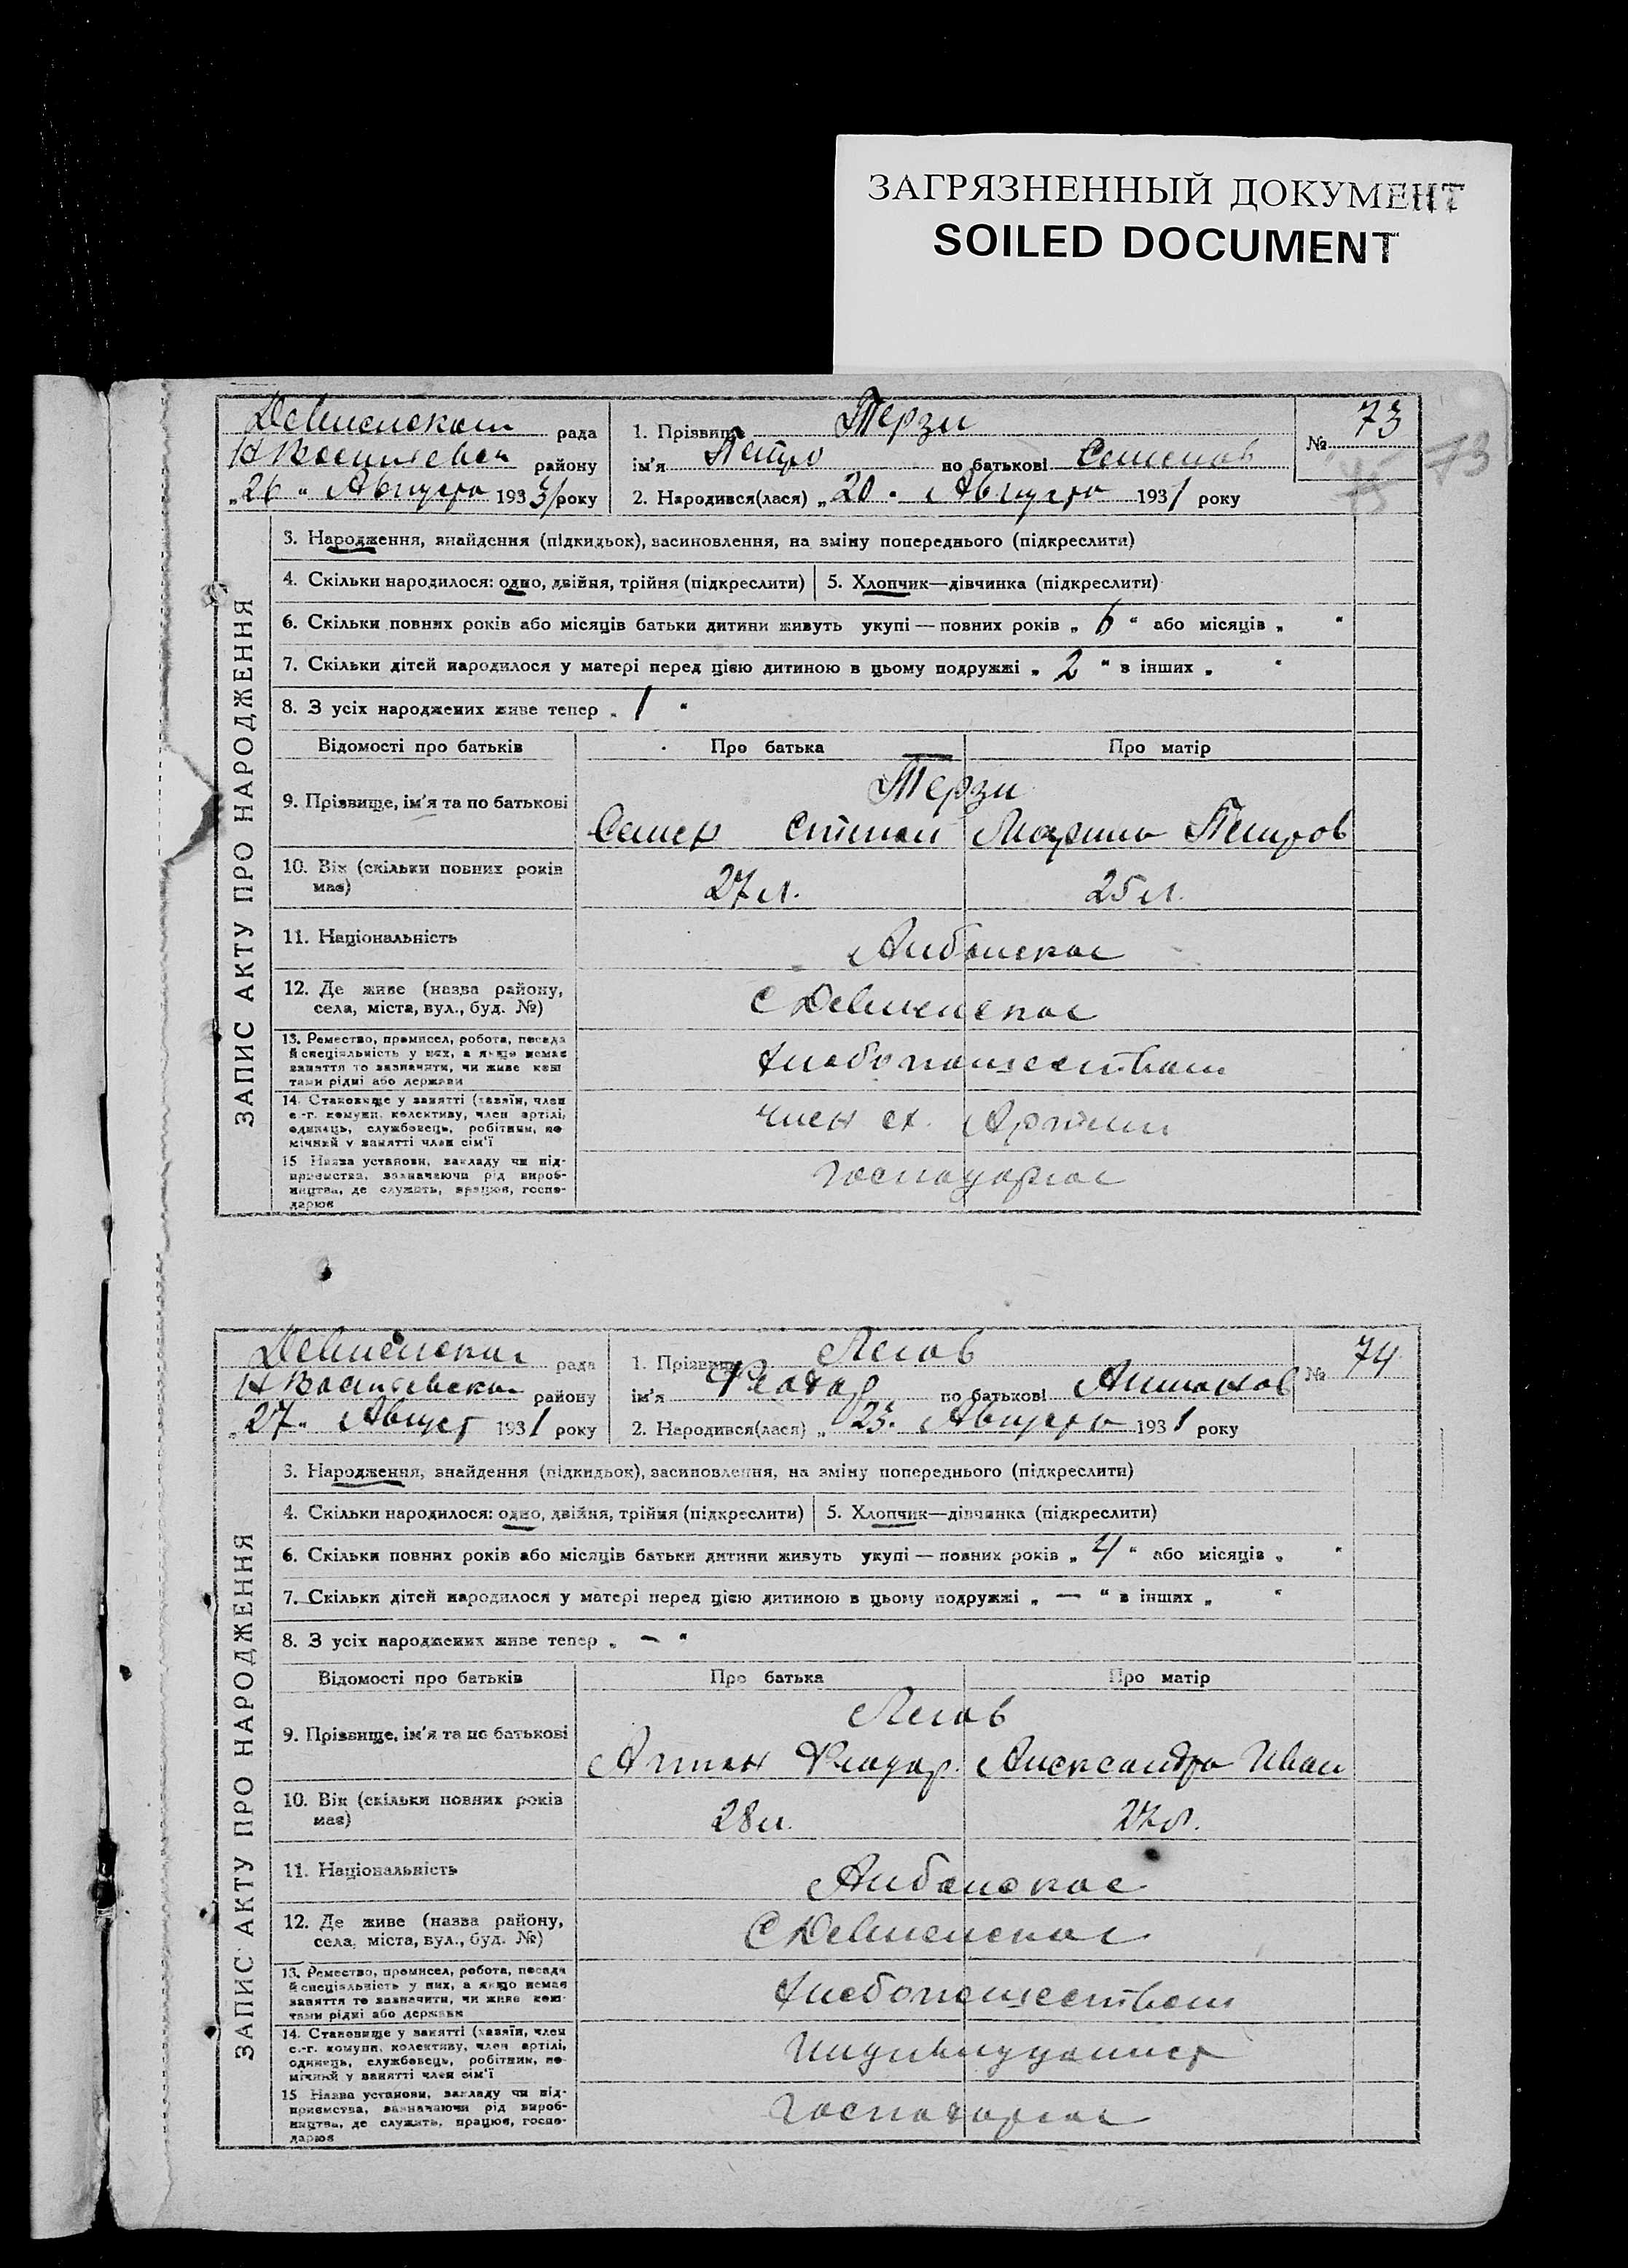 ЗАГРЯЗНЕННЫЙ ДОКУМЕНТ
SOILED DOCUMENT
Девненскои рада
Н Васильевск району
„26" Августа 1931 року
1. Прізвище Терзи
ім'я Петро по батькові Семенов
2. Народився(лася) „20" Августа 1931 року
№ 73
73
ЗАПИС АКТУ ПРО НАРОДЖЕННЯ
3. Народження, знайдення (підкидьок), засиновлення, на зміну попереднього (підкреслити)
4. Скільки народилося: одно, двійня, трійня (підкреслити)
5. Хлопчик—дівчинка (підкреслити)
6. Скільки повних років або місяців батьки дитини живуть укупі — повних років „ 6 " або місяців „ "
7. Скільки дітей народилося у матері перед цією дитиною в цьому подружжі „ 2 " в інших „ "
8. З усіх народжених живе тепер „ 1 "
Відомості про батьків Про батька Про матір
9. Прізвище, ім'я та по батькові
Терзи
Семен Степан Марина Петров
10. Вік (скільки повних років має)
27 л. 25 л.
11. Національність
Албанская
12. Де живе (назва району,
села, міста, вул., буд. №)
С Девненская
13. Ремество, промисел, робота, посада
й спеціяльність у них, а якщо немає
заняття то зазначити, чи живе кош
тами рідні або держави
Хлебопашеством
14. Становище у занятті (хазяїн, член
с.-г. комуни, колективу, член артілі,
одинець, службовець, робітник, по
мічний у занятті член сім'ї
член сх. Артели
15 Назва установи, закладу чи під-
приємства, зазначаючи рід вироб-
ництва, де служить, працює, госпо-
дарює
господарює
Девненская рада
Н Васильевская району
„27" Август 1931 року
1. Прізвище Легов
ім'я Феодор по батькові Антонов
2. Народився(лася) „23" Августа 1931 року
№ 74
ЗАПИС АКТУ ПРО НАРОДЖЕННЯ
3. Народження, знайдення (підкидьок), засиновлення, на зміну попереднього (підкреслити)
4. Скільки народилося: одно, двійня, трійня (підкреслити)
5. Хлопчик—дівчинка (підкреслити)
6. Скільки повних років або місяців батьки дитини живуть укупі — повних років „ 4 " або місяців „ "
7. Скільки дітей народилося у матері перед цією дитиною в цьому подружжі „ — " в інших „ "
8. З усіх народжених живе тепер „ — "
Відомості про батьків Про батька Про матір
9. Прізвище, ім'я та по батькові
Легов
Антон Феодор. Александра Иван
10. Вік (скільки повних років має)
28 л. 27 л.
11. Національність
Албанская
12. Де живе (назва району,
села, міста, вул., буд. №)
С Девненская
13. Ремество, промисел, робота, посада
й спеціяльність у них, а якщо немає
заняття то зазначити, чи живе кош-
тами рідні або держави
Хлебопашеством
14. Становище у занятті (хазяїн, член
с.-г. комуни, колективу, член артілі,
одинець, службовець, робітник, по-
мічний у занятті член сім'ї
Индивидуалист
15 Назва установи, закладу чи під-
приємства, зазначаючи рід вироб-
ництва, де служить, працює, госпо-
дарює
господарює